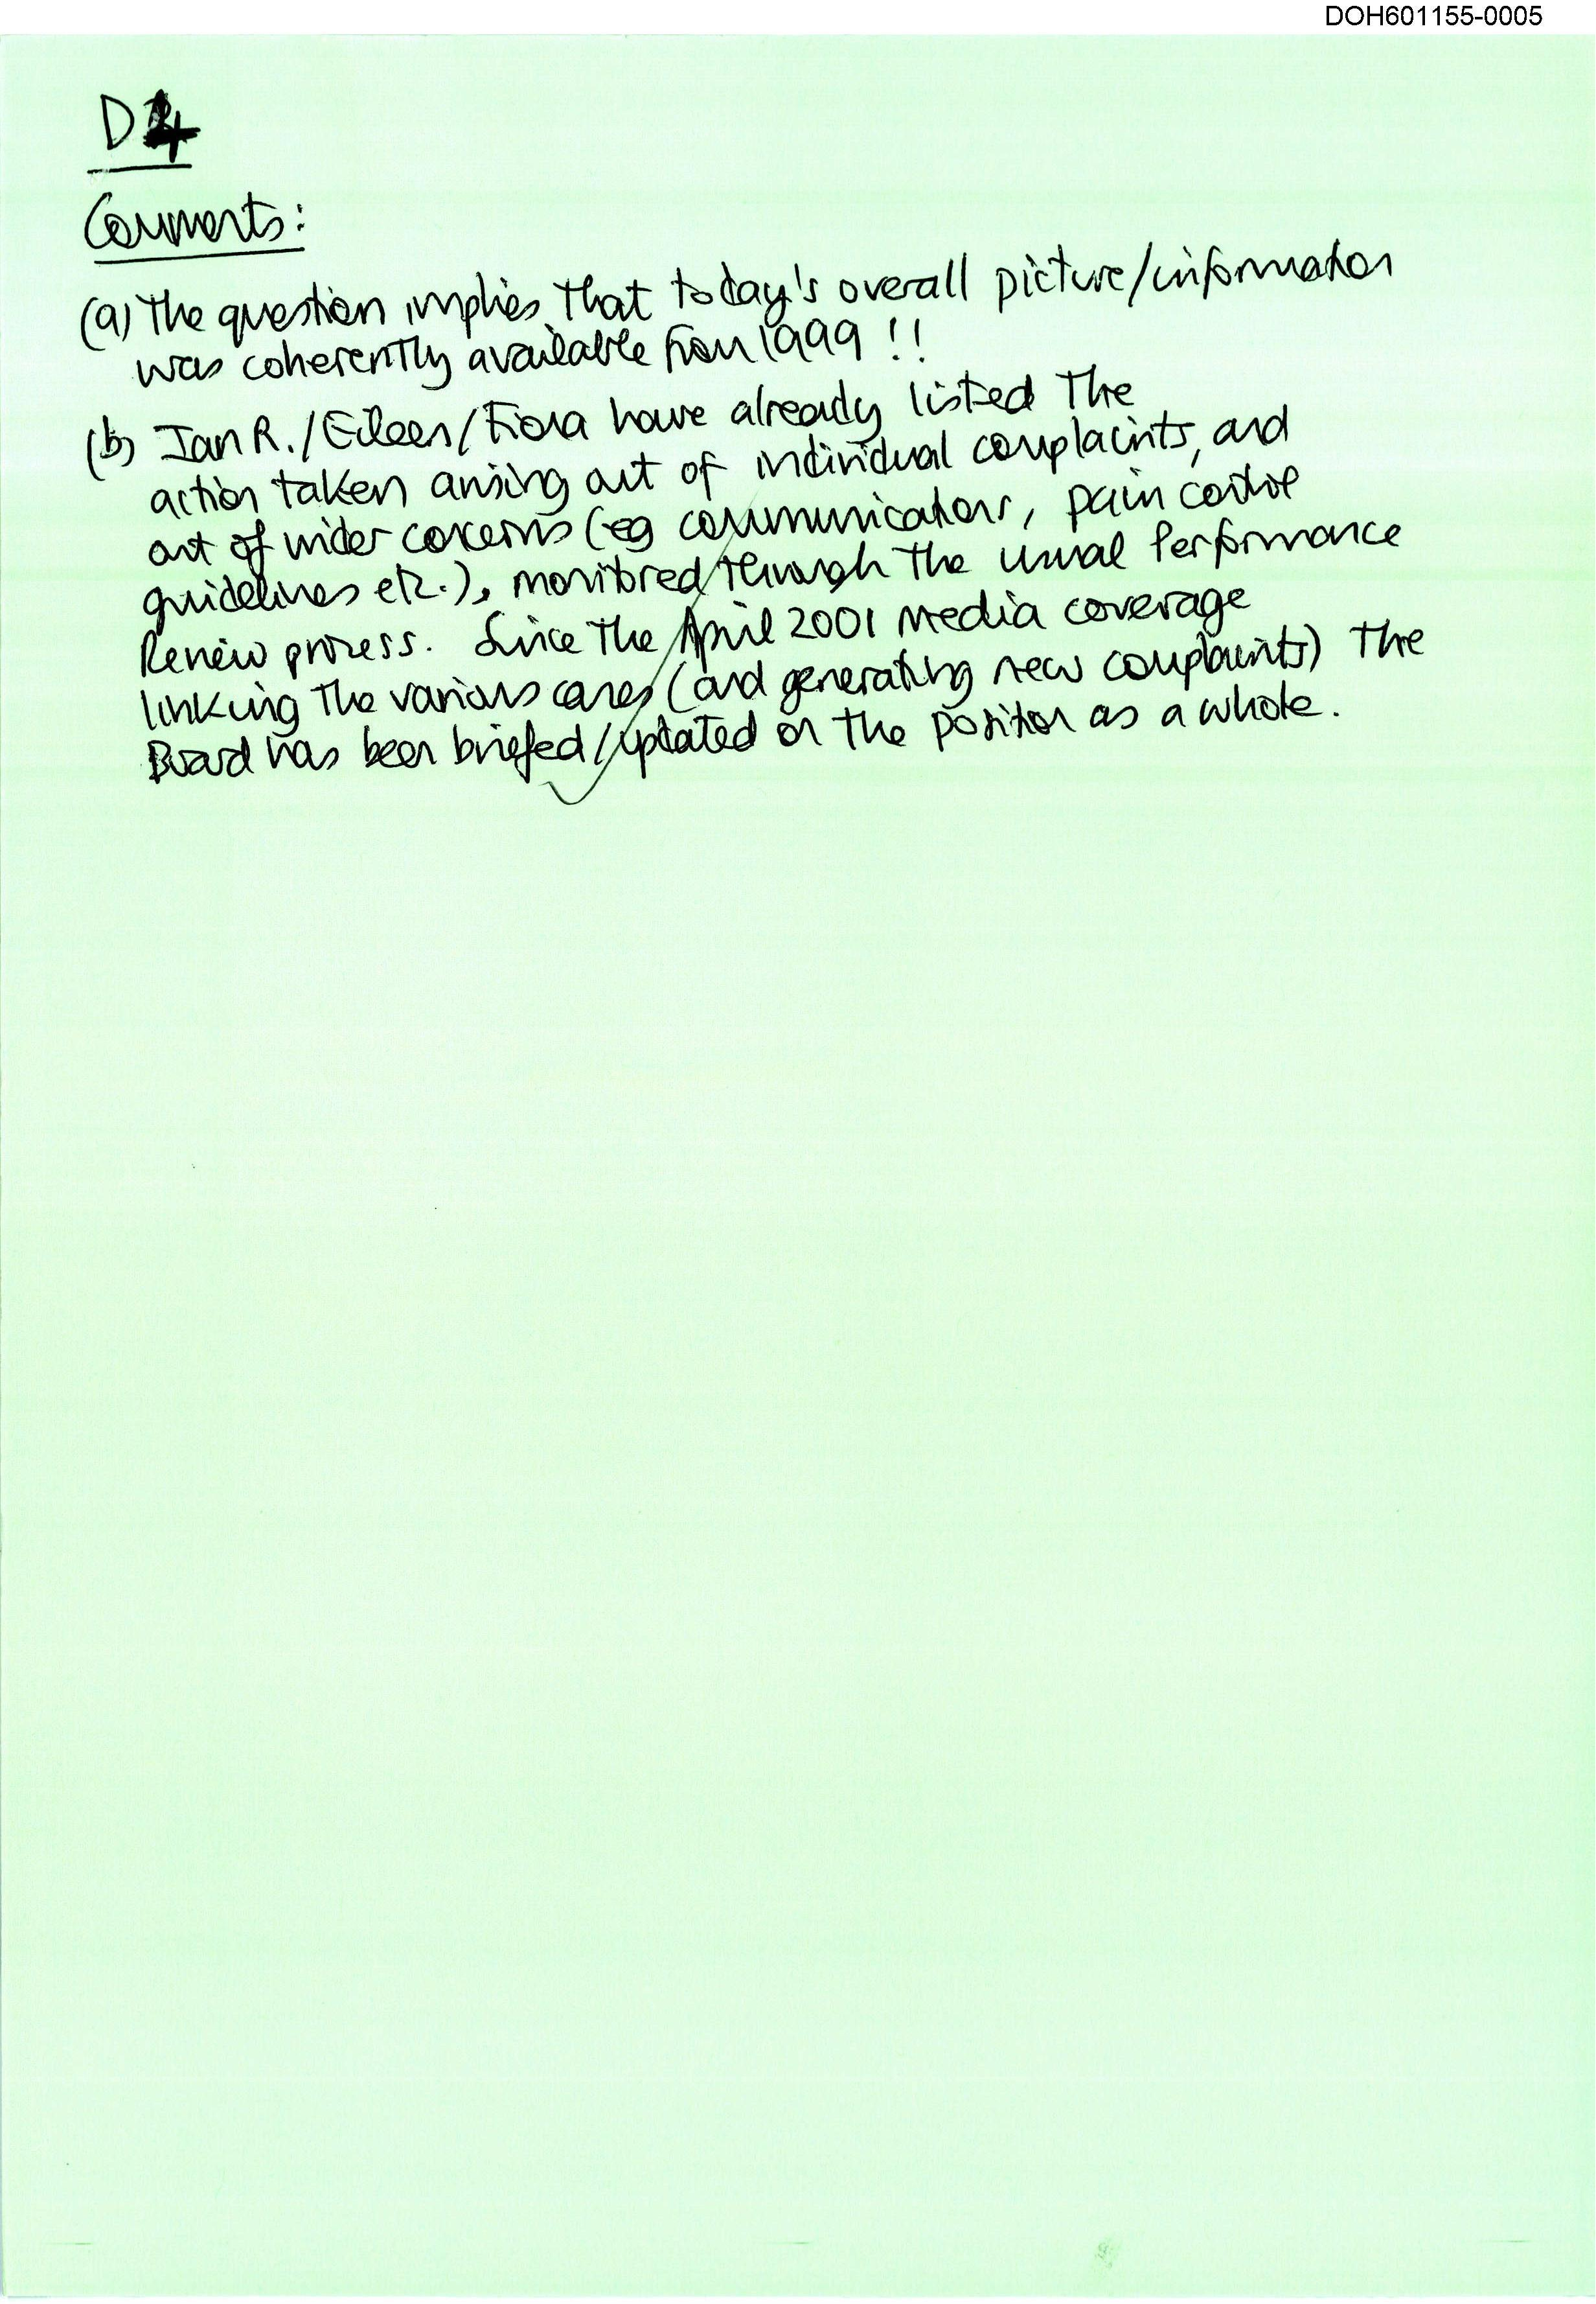 DOH601155-0005
D4
Comments:
(a) The question implies that today's overall picture/information
was coherently available from 1999 !!
(b) Ian R./Eileen/Fiona have already listed the
action taken arising out of individual complaints, and
out of wider concerns (eg communications, pain control
guidelines etc.), monitored through the usual Performance
Review process. Since the April 2001 media coverage
linking the various cases (and generating new complaints) the
Board has been briefed/updated on the position as a whole.